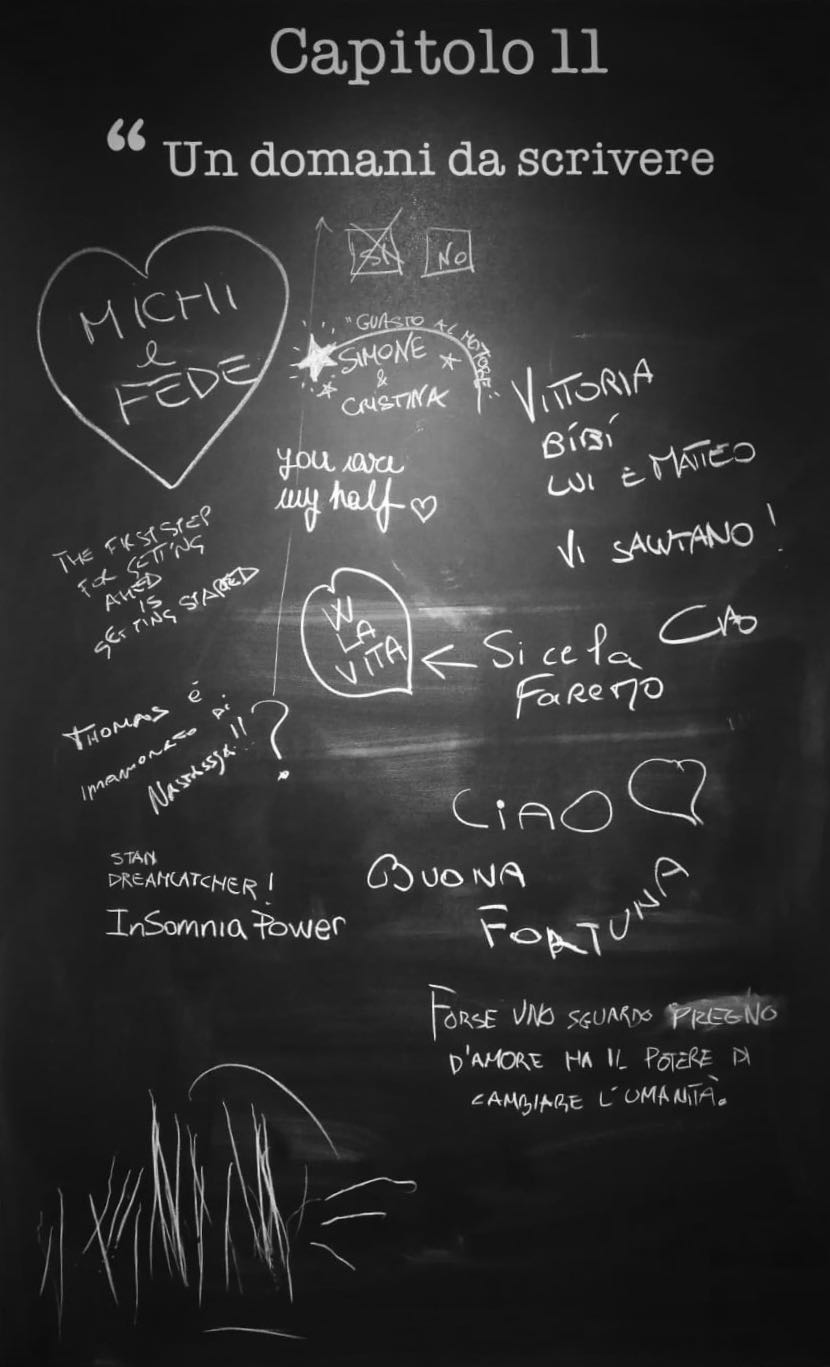 Capitolo 11
“ Un domani da scrivere
SI NO
MICHI
e
FEDE
"GUASTO AL MOTORE"
SIMONE
&
CRISTINA
you are
my half
VITTORIA
BIBÍ
LUI È MATTEO
VI SALUTANO!
THE FIRST STEP
FOR GETTING
AHED
IS
GETTING STARTED
W
LA
VITA
Si ce la
FaREMO
CIAO
THOMAS È
IMAMORATO DI
NASTASSJA..!!
?
CiAO
BUONA
FORTUNA
STAN
DREAMCATCHER!
InSomnia Power
FORSE UNO SGUARDO PREGNO
D'AMORE HA IL POTERE DI
CAMBIARE L'UMANITÀ.